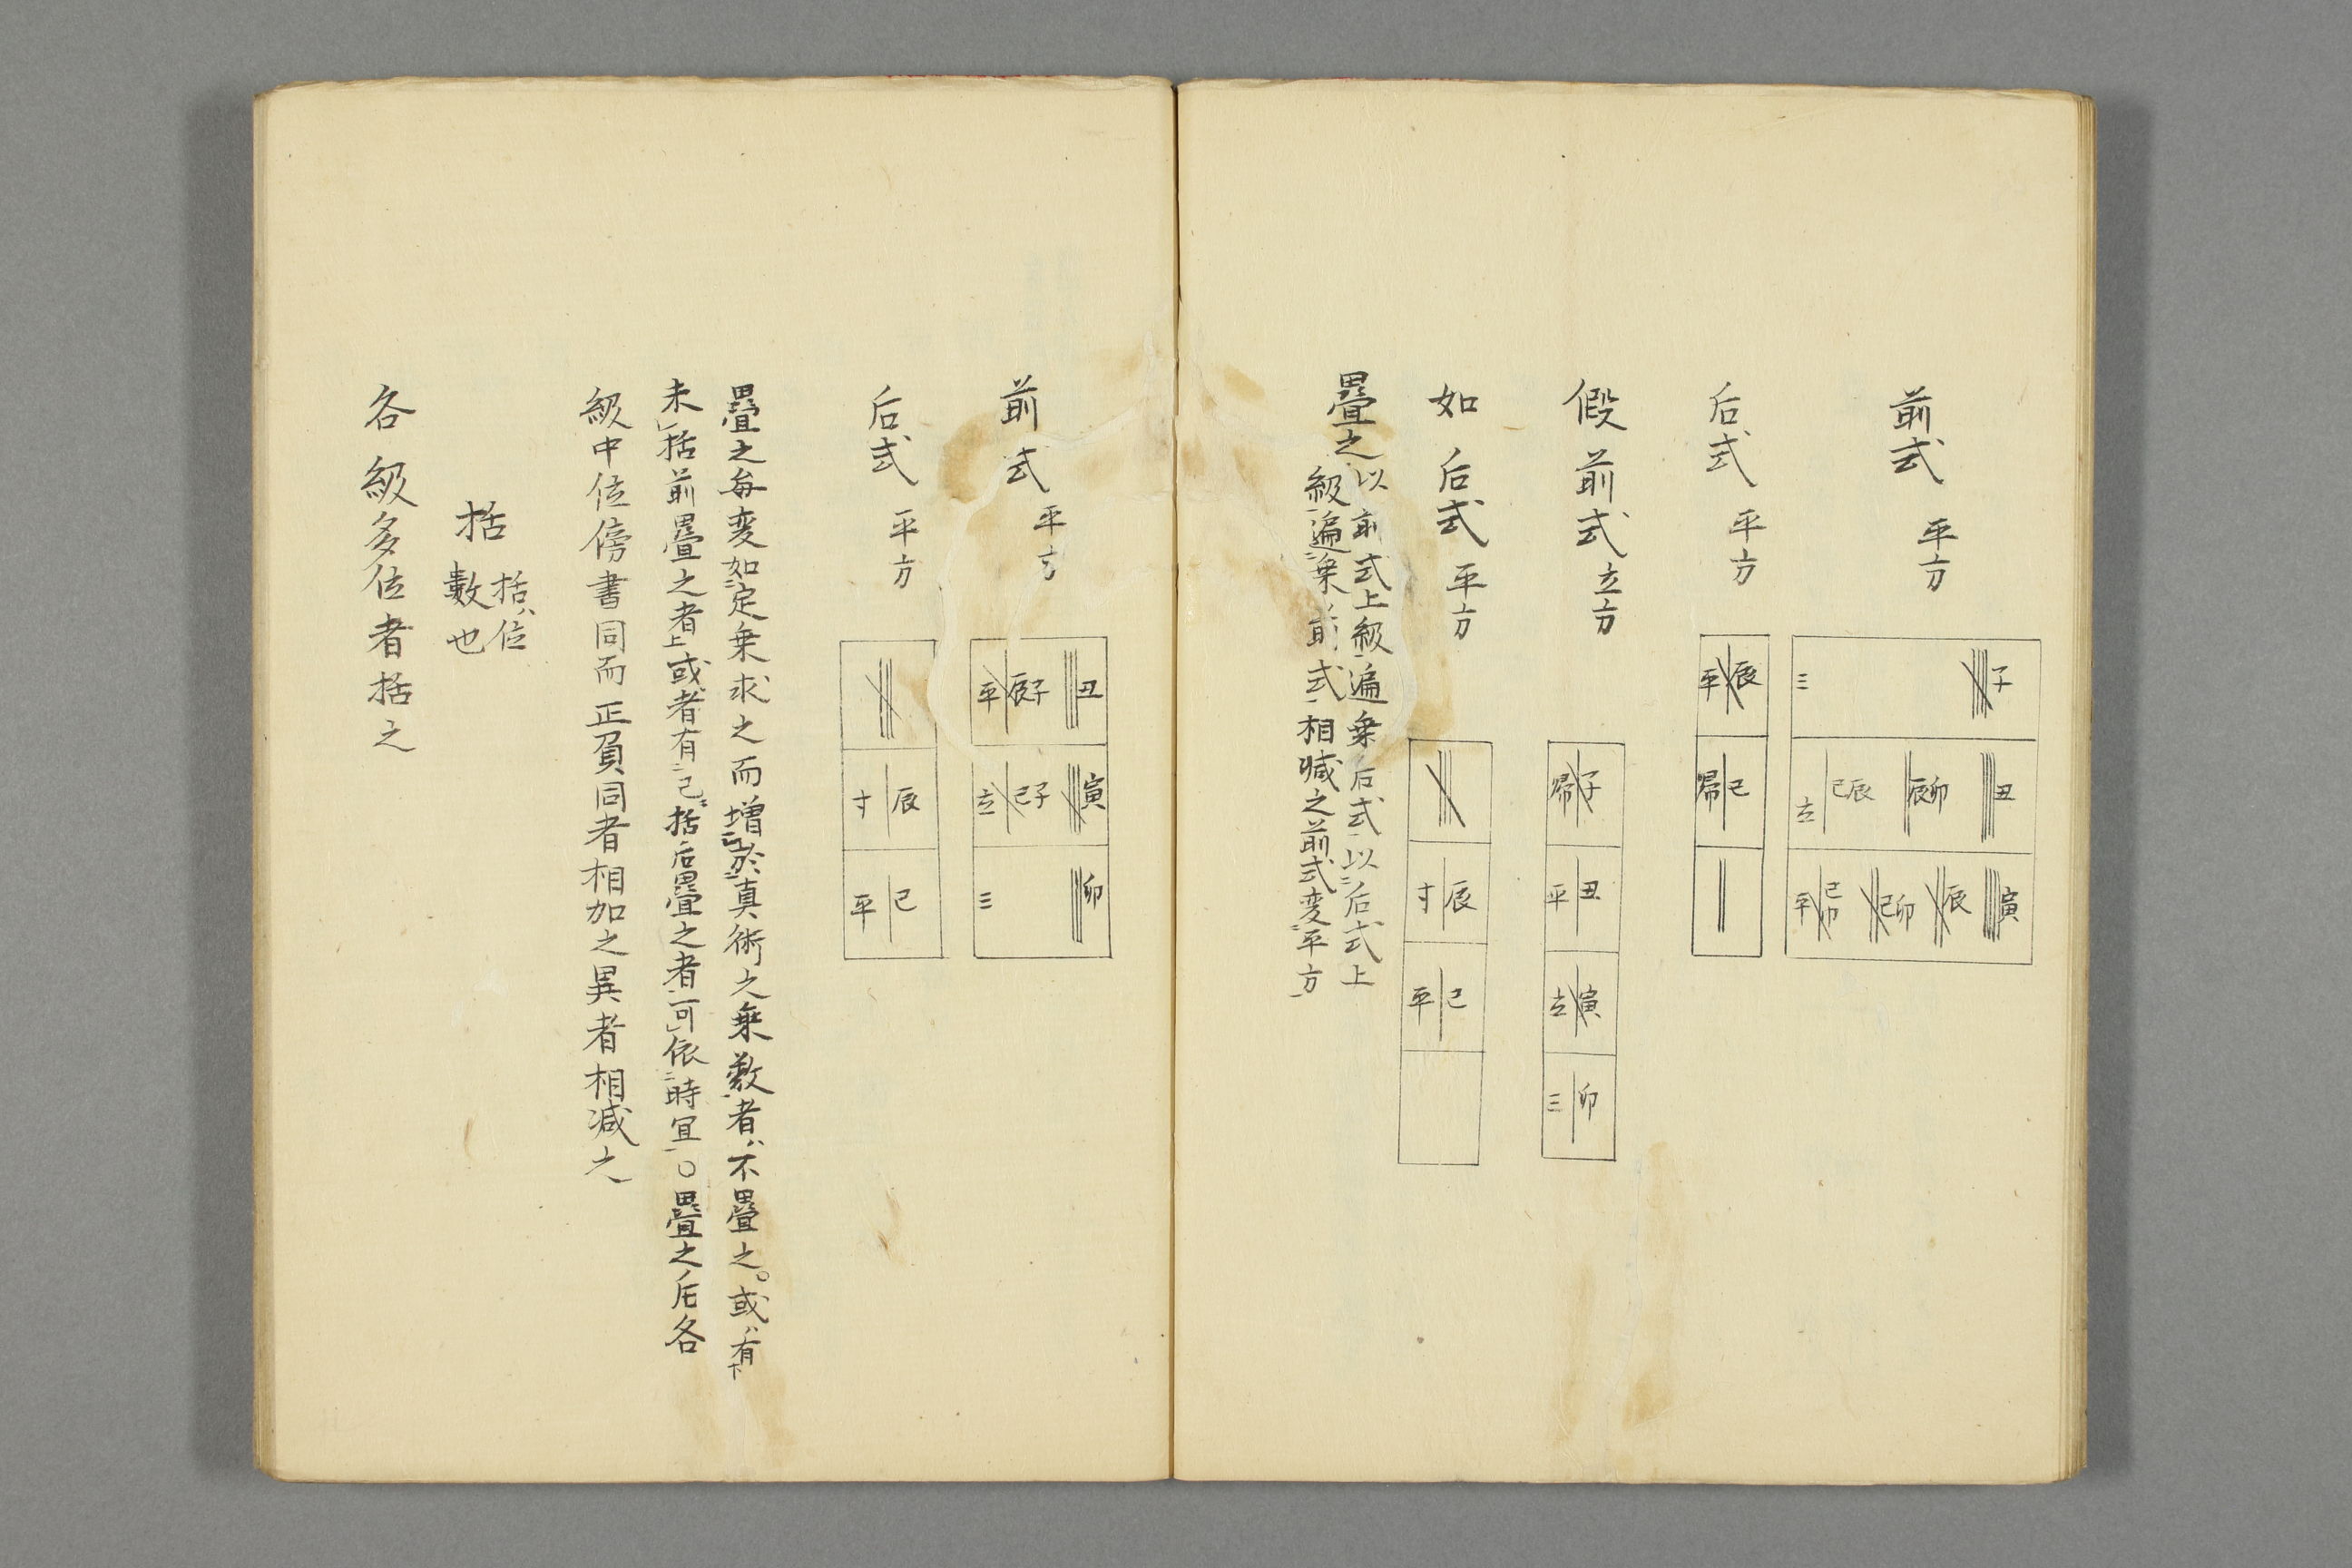 前式 平方
子 三
丑 辰卯 己辰 立
寅 辰 己卯 己卯 平
后式 平方
辰 平
己 帰
假前式 立方
子 帰
丑 平
寅 立
卯 三
如后式 平方
辰 寸
己 平
疊之
以前式上級遍乗后式以后式上
級遍乗前式相减之前式変平方
前式 平方
丑 辰子 平
寅 己子 立
卯 三
后式 平方
辰 寸
己 平
疊之毎変如定乗求之而増於真術之乗数者ハ不疊之。或ハ有下
未括前疊之者上或者有已括后疊之者可依時宜○疊之后各
級中位傍書同而正負同者相加之異者相减之
括
括ハ位
數也
各級多位者括之